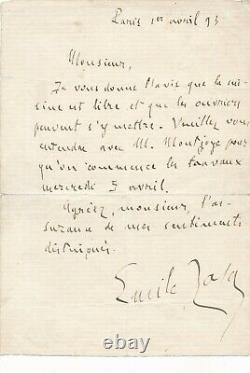 Paris 1er avril 93
Monsieur,
Je vous donne l'avis que la cui-
sine est libre et que les ouvriers
peuvent s'y mettre. Veuillez vous
entendre avec M. Montjoye pour
qu'on commence les travaux
mercredi 5 avril.
Agréez, monsieur, l'as-
surance de mes sentiments
distingués.
Emile Zola